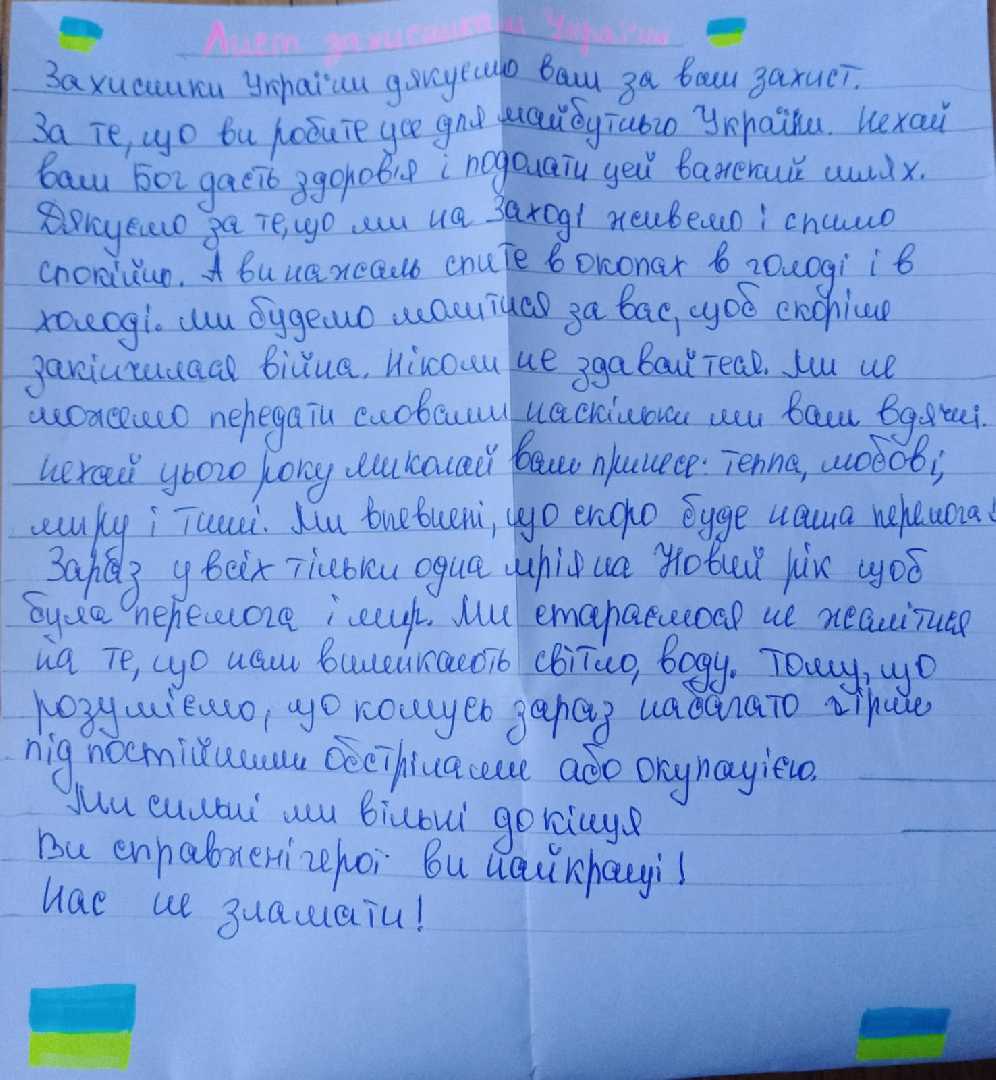 Лист захисникам України
Захисники України дякуємо вам за ваш захист.
За те, що ви робите усе для майбутнього України. Нехай
вам Бог дасть здоров'я і подолати цей важкий шлях.
Дякуємо за те, що ми на Заході живемо і спимо
спокійно. А ви нажаль спите в окопах в голоді і в
холоді. Ми будемо молитися за вас, щоб скоріше
закінчилася війна. Ніколи не здавайтеся. Ми не
можемо передати словами наскільки ми вам вдячні.
Нехай цього року Миколай вам принесе: тепла, любові,
миру і тиші. Ми впевнені, що скоро буде наша перемога!
Зараз у всіх тільки одна мрія на Новий рік щоб
була перемога і мир. Ми стараємося не жалітися
на те, що нам вимикають світло, воду. Тому, що
розуміємо, що комусь зараз набагато гірше
під постійними обстрілами або окупацією.
Ми сильні ми вільні до кінця
Ви справжні герої ви найкращі!
Нас не зламати!